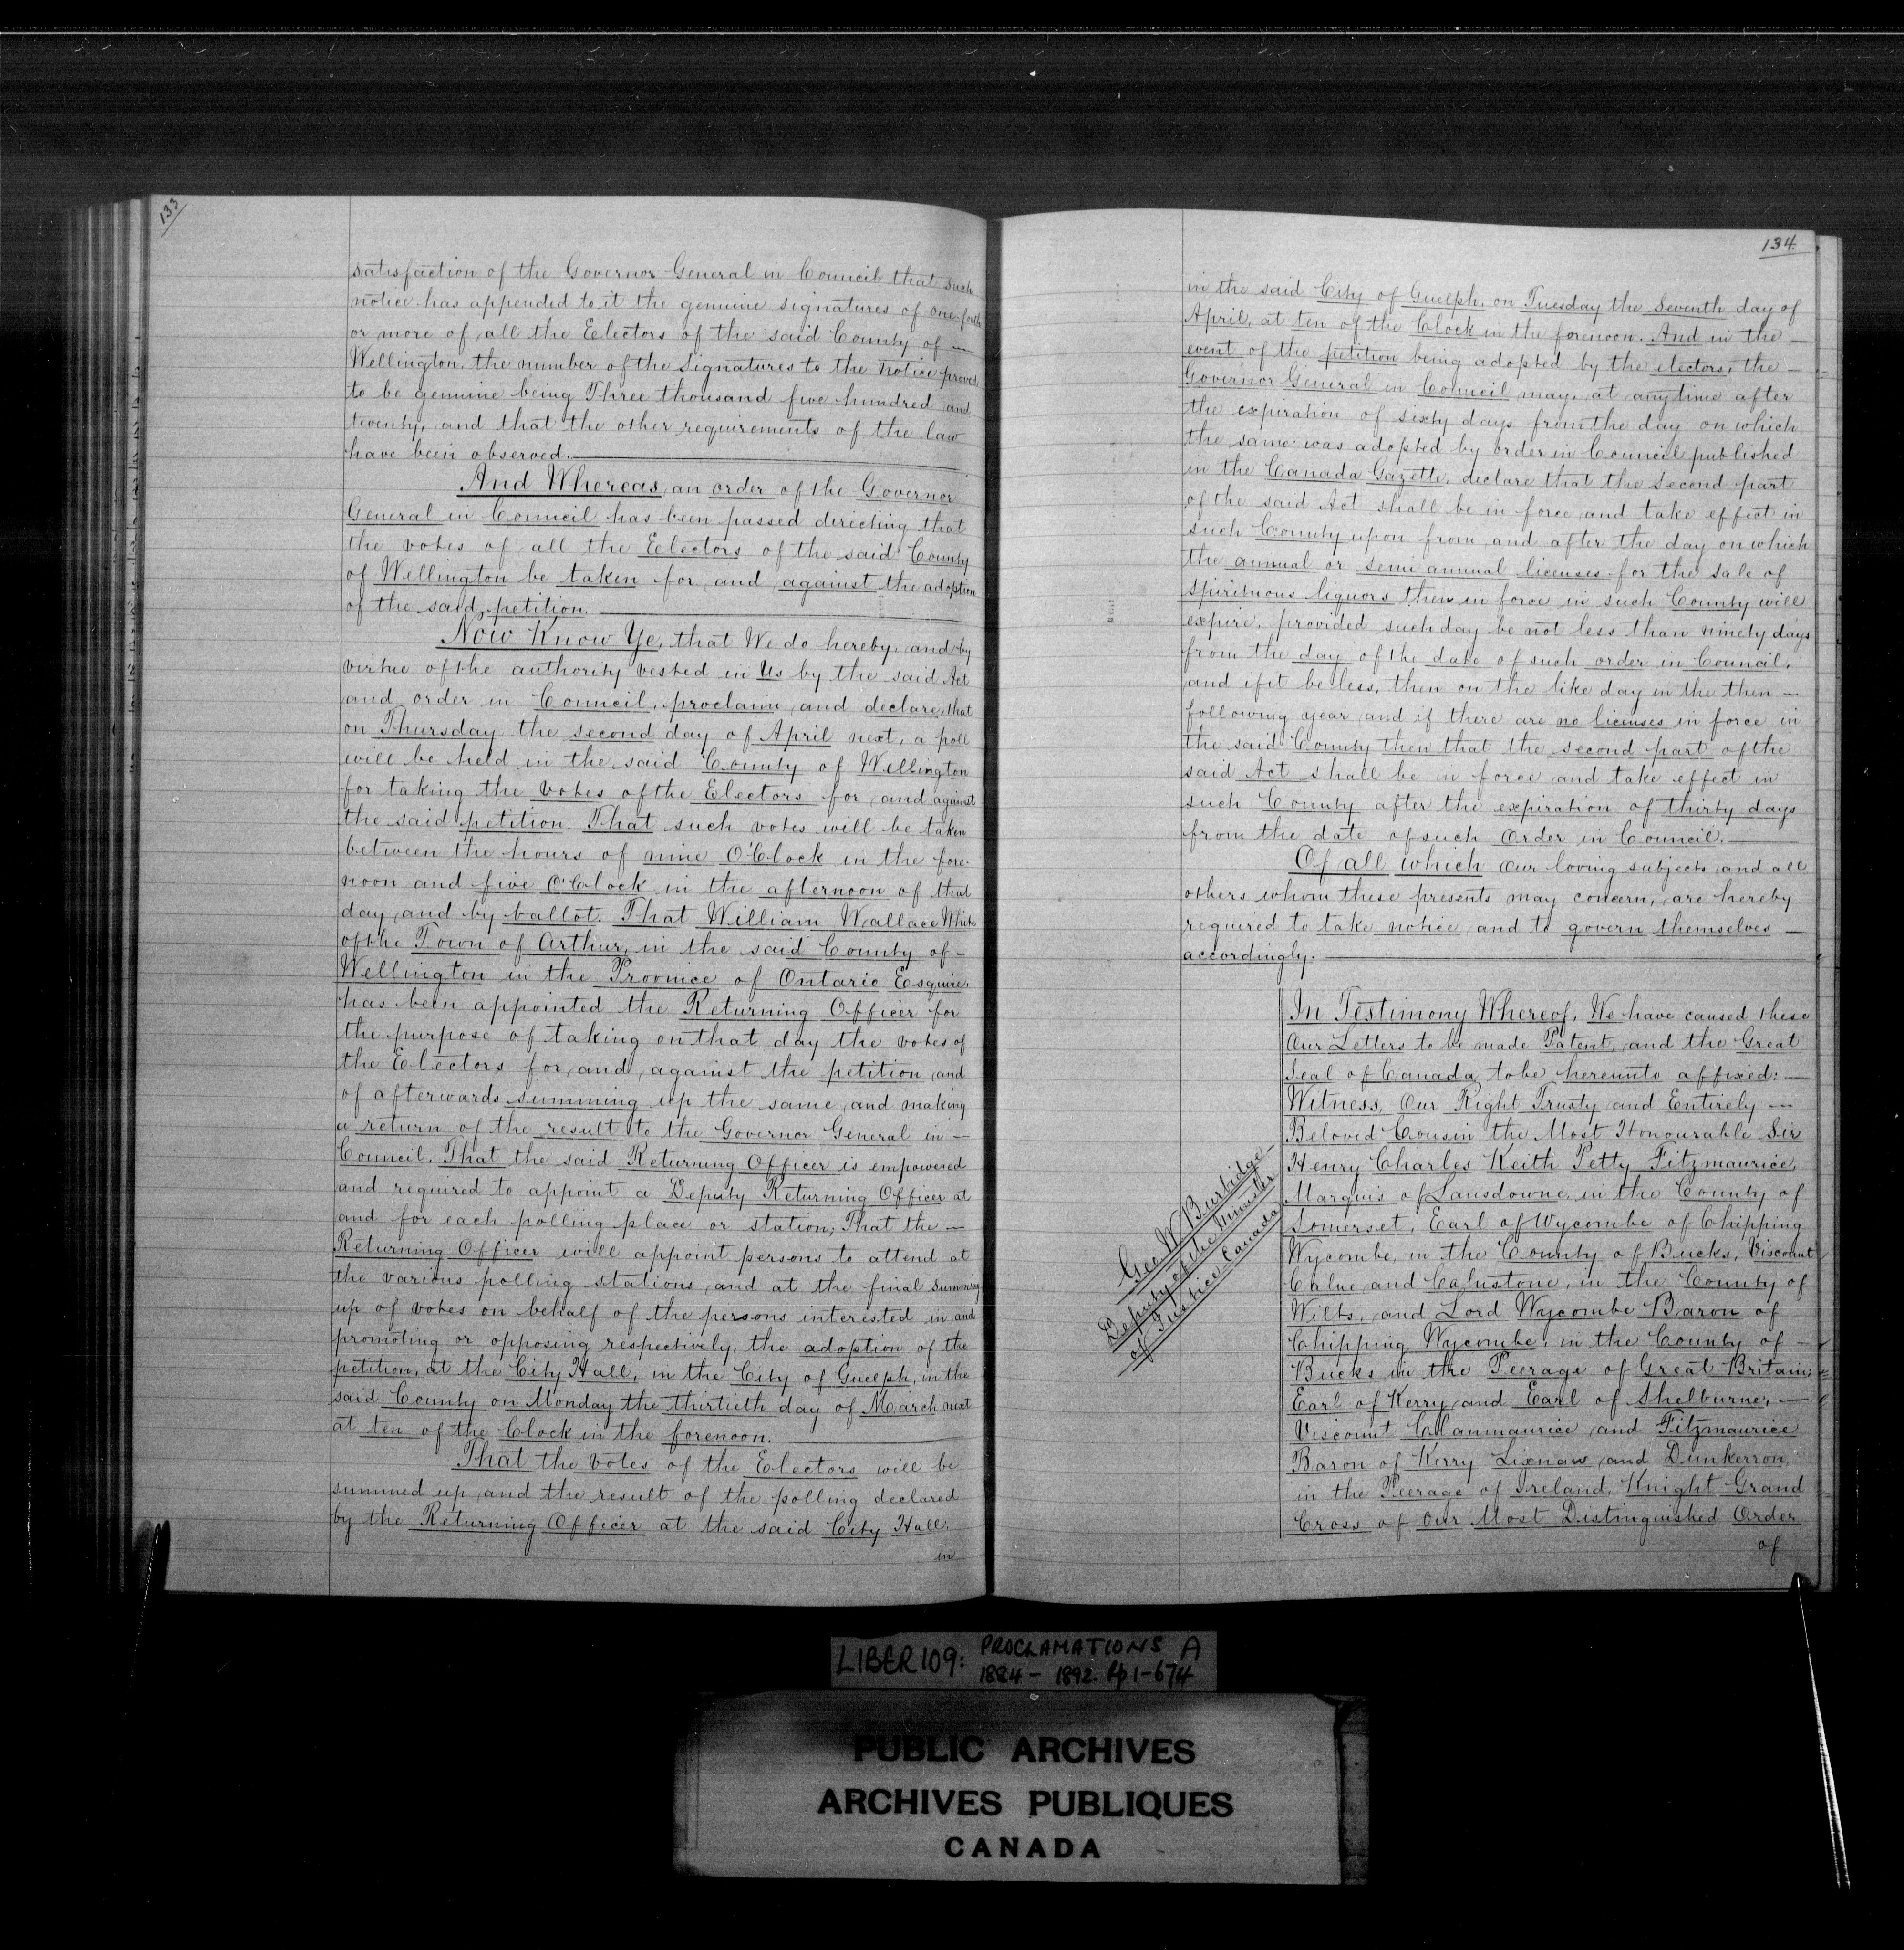 133
satisfaction of the Governor General in Council that such
notice has appended to it the genuine signatures of one-fourth
or more of all the Electors of the said County of —
Wellington, the number of the Signatures to the notice proved
to be genuine being Three thousand five hundred and
twenty, and that the other requirements of the law
have been observed.
And Whereas, an order of the Governor
General in Council has been passed directing that
the votes of all the Electors of the said County
of Wellington be taken for and against the adoption
of the said petition.
Now Know Ye, that We do hereby, and by
virtue of the authority vested in Us by the said Act
and order in Council, proclaim and declare, that
on Thursday the second day of April next, a poll
will be held in the said County of Wellington
for taking the votes of the Electors for and against
the said petition. That such votes will be taken
between the hours of nine O'Clock in the fore-
noon and five O'Clock in the afternoon of that
day and by ballot. That William Wallace White
of the Town of Arthur, in the said County of —
Wellington in the Province of Ontario Esquire,
has been appointed the Returning Officer for
the purpose of taking on that day the votes of
the Electors for and against the petition and
of afterwards summing up the same and making
a return of the result to the Governor General in —
Council. That the said Returning Officer is empowered
and required to appoint a Deputy Returning Officer at
and for each polling place or station; That the —
Returning Officer will appoint persons to attend at
the various polling stations and at the final summing
up of votes on behalf of the persons interested in and
promoting or opposing respectively, the adoption of the
petition, at the City Hall, in the City of Guelph, in the
said County on Monday the thirtieth day of March next
at ten of the Clock in the forenoon.
That the votes of the Electors will be
summed up and the result of the polling declared
by the Returning Officer at the said City Hall,
in
134
in the said City of Guelph, on Tuesday the Seventh day of
April, at ten of the Clock in the forenoon. And in the —
event of the petition being adopted by the electors, the —
Governor General in Council may, at anytime after
the expiration of sixty days from the day on which
the same was adopted by order in Council published
in the Canada Gazette, declare that the Second part
of the said Act shall be in force and take effect in
such County upon from and after the day on which
the annual or semi annual licenses for the sale of
spirituous liquors then in force in such County will
expire, provided such day be not less than ninety days
from the day of the date of such order in Council,
and if it be less, then on the like day in the then —
following year and if there are no licenses in force in
the said County then that the second part of the
said Act shall be in force and take effect in
such County after the expiration of thirty days
from the date of such Order in Council.
Of all which Our loving subjects and all
others whom these presents may concern, are hereby
required to take notice and to govern themselves —
accordingly.
In Testimony Whereof, We have caused these
Our Letters to be made Patent, and the Great
Seal of Canada to be hereunto affixed: —
Witness, Our Right Trusty and Entirely —
Beloved Cousin the Most Honourable Sir
Henry Charles Keith Petty Fitzmaurice,
Marquis of Lansdowne, in the County of
Somerset, Earl of Wycombe of Chipping
Wycombe, in the County of Bucks, Viscount
Calne and Calnstone, in the County of
Wilts, and Lord Wycombe Baron of
Chipping Wycombe, in the County of —
Bucks in the Peerage of Great Britain;
Earl of Kerry and Earl of Shelburne, —
Viscount Clanmaurice and Fitzmaurice
Baron of Kerry Lixnaw and Dunkerron,
in the Peerage of Ireland, Knight Grand
Cross of Our Most Distinguished Order
of
Geo W Burbidge
Deputy of the Minister
of Justice Canada
LIBER 109: PROCLAMATIONS A
1884 - 1892. Pp 1-674
PUBLIC ARCHIVES
ARCHIVES PUBLIQUES
CANADA